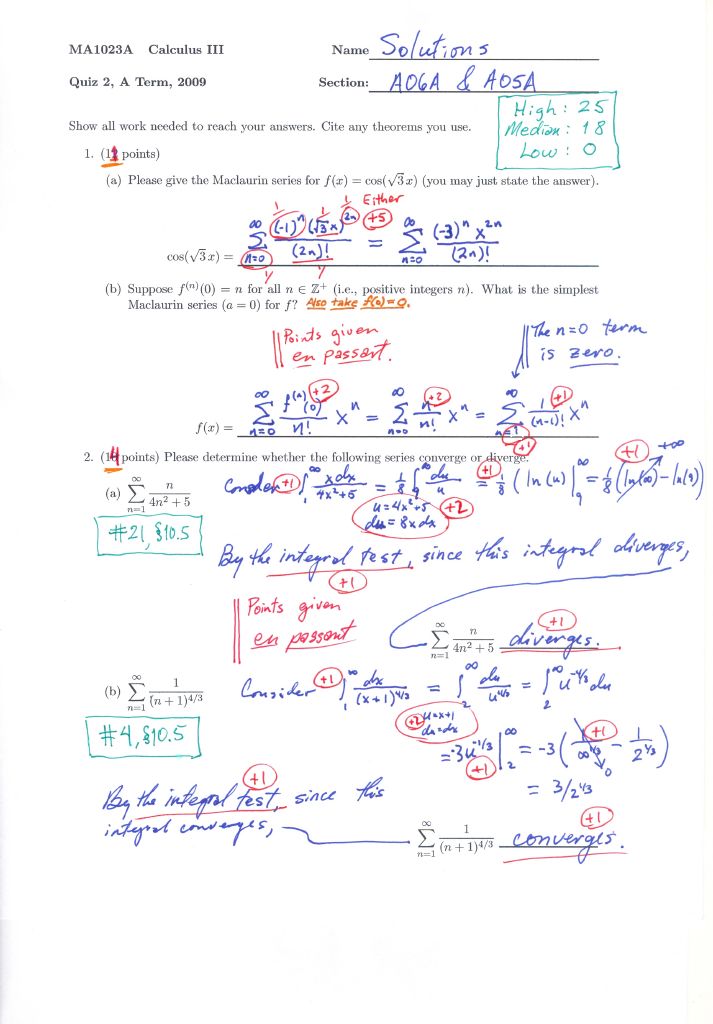 MA1023A Calculus III Name Solutions
Quiz 2, A Term, 2009 Section: A06A & A05A
High: 25
Median: 18
Low: 0
Show all work needed to reach your answers. Cite any theorems you use.
1. (11 points)
(a) Please give the Maclaurin series for f(x) = cos(√3 x) (you may just state the answer).
1 1 1 Either +5
cos(√3 x) = ∞ Σ n=0 (-1)^n (√3 x)^2n / (2n)! = ∞ Σ n=0 (-3)^n x^2n / (2n)!
1 1
(b) Suppose f^(n)(0) = n for all n ∈ Z+ (i.e., positive integers n). What is the simplest
Maclaurin series (a = 0) for f? Also take f(0) = 0.
Points given
en passant.
The n=0 term
is zero.
f(x) = ∞ Σ n=0 f^(n)(0) / n! x^n +2 = ∞ Σ n=0 n / n! x^n +2 = ∞ Σ n=1 1 / (n-1)! x^n +1
+1
2. (14 points) Please determine whether the following series converge or diverge.
(a) ∞ Σ n=1 n / 4n² + 5 Consider +1 ∫ 1 ∞ x dx / 4x²+5 = 1/8 ∫ 9 ∞ du / u +1 = 1/8 (ln(u) | 9 ∞ = 1/8 (ln(∞) - ln(9)) +1 +∞
u = 4x²+5
du = 8x dx +2
#21, §10.5
By the integral test, since this integral diverges,
+1
Points given
en passant
∞ Σ n=1 n / 4n² + 5 diverges. +1
(b) ∞ Σ n=1 1 / (n + 1)^4/3 Consider +1 ∫ 1 ∞ dx / (x+1)^4/3 = ∫ 2 ∞ du / u^4/3 = ∫ 2 ∞ u^-4/3 du
+2 u=x+1
du=dx
#4, §10.5
= -3u^-1/3 | 2 ∞ +1 = -3 ( 1 / ∞^1/3 - 1 / 2^1/3 ) +1 0
= 3/2^1/3
+1
By the integral test, since this
integral converges,
∞ Σ n=1 1 / (n + 1)^4/3 converges. +1